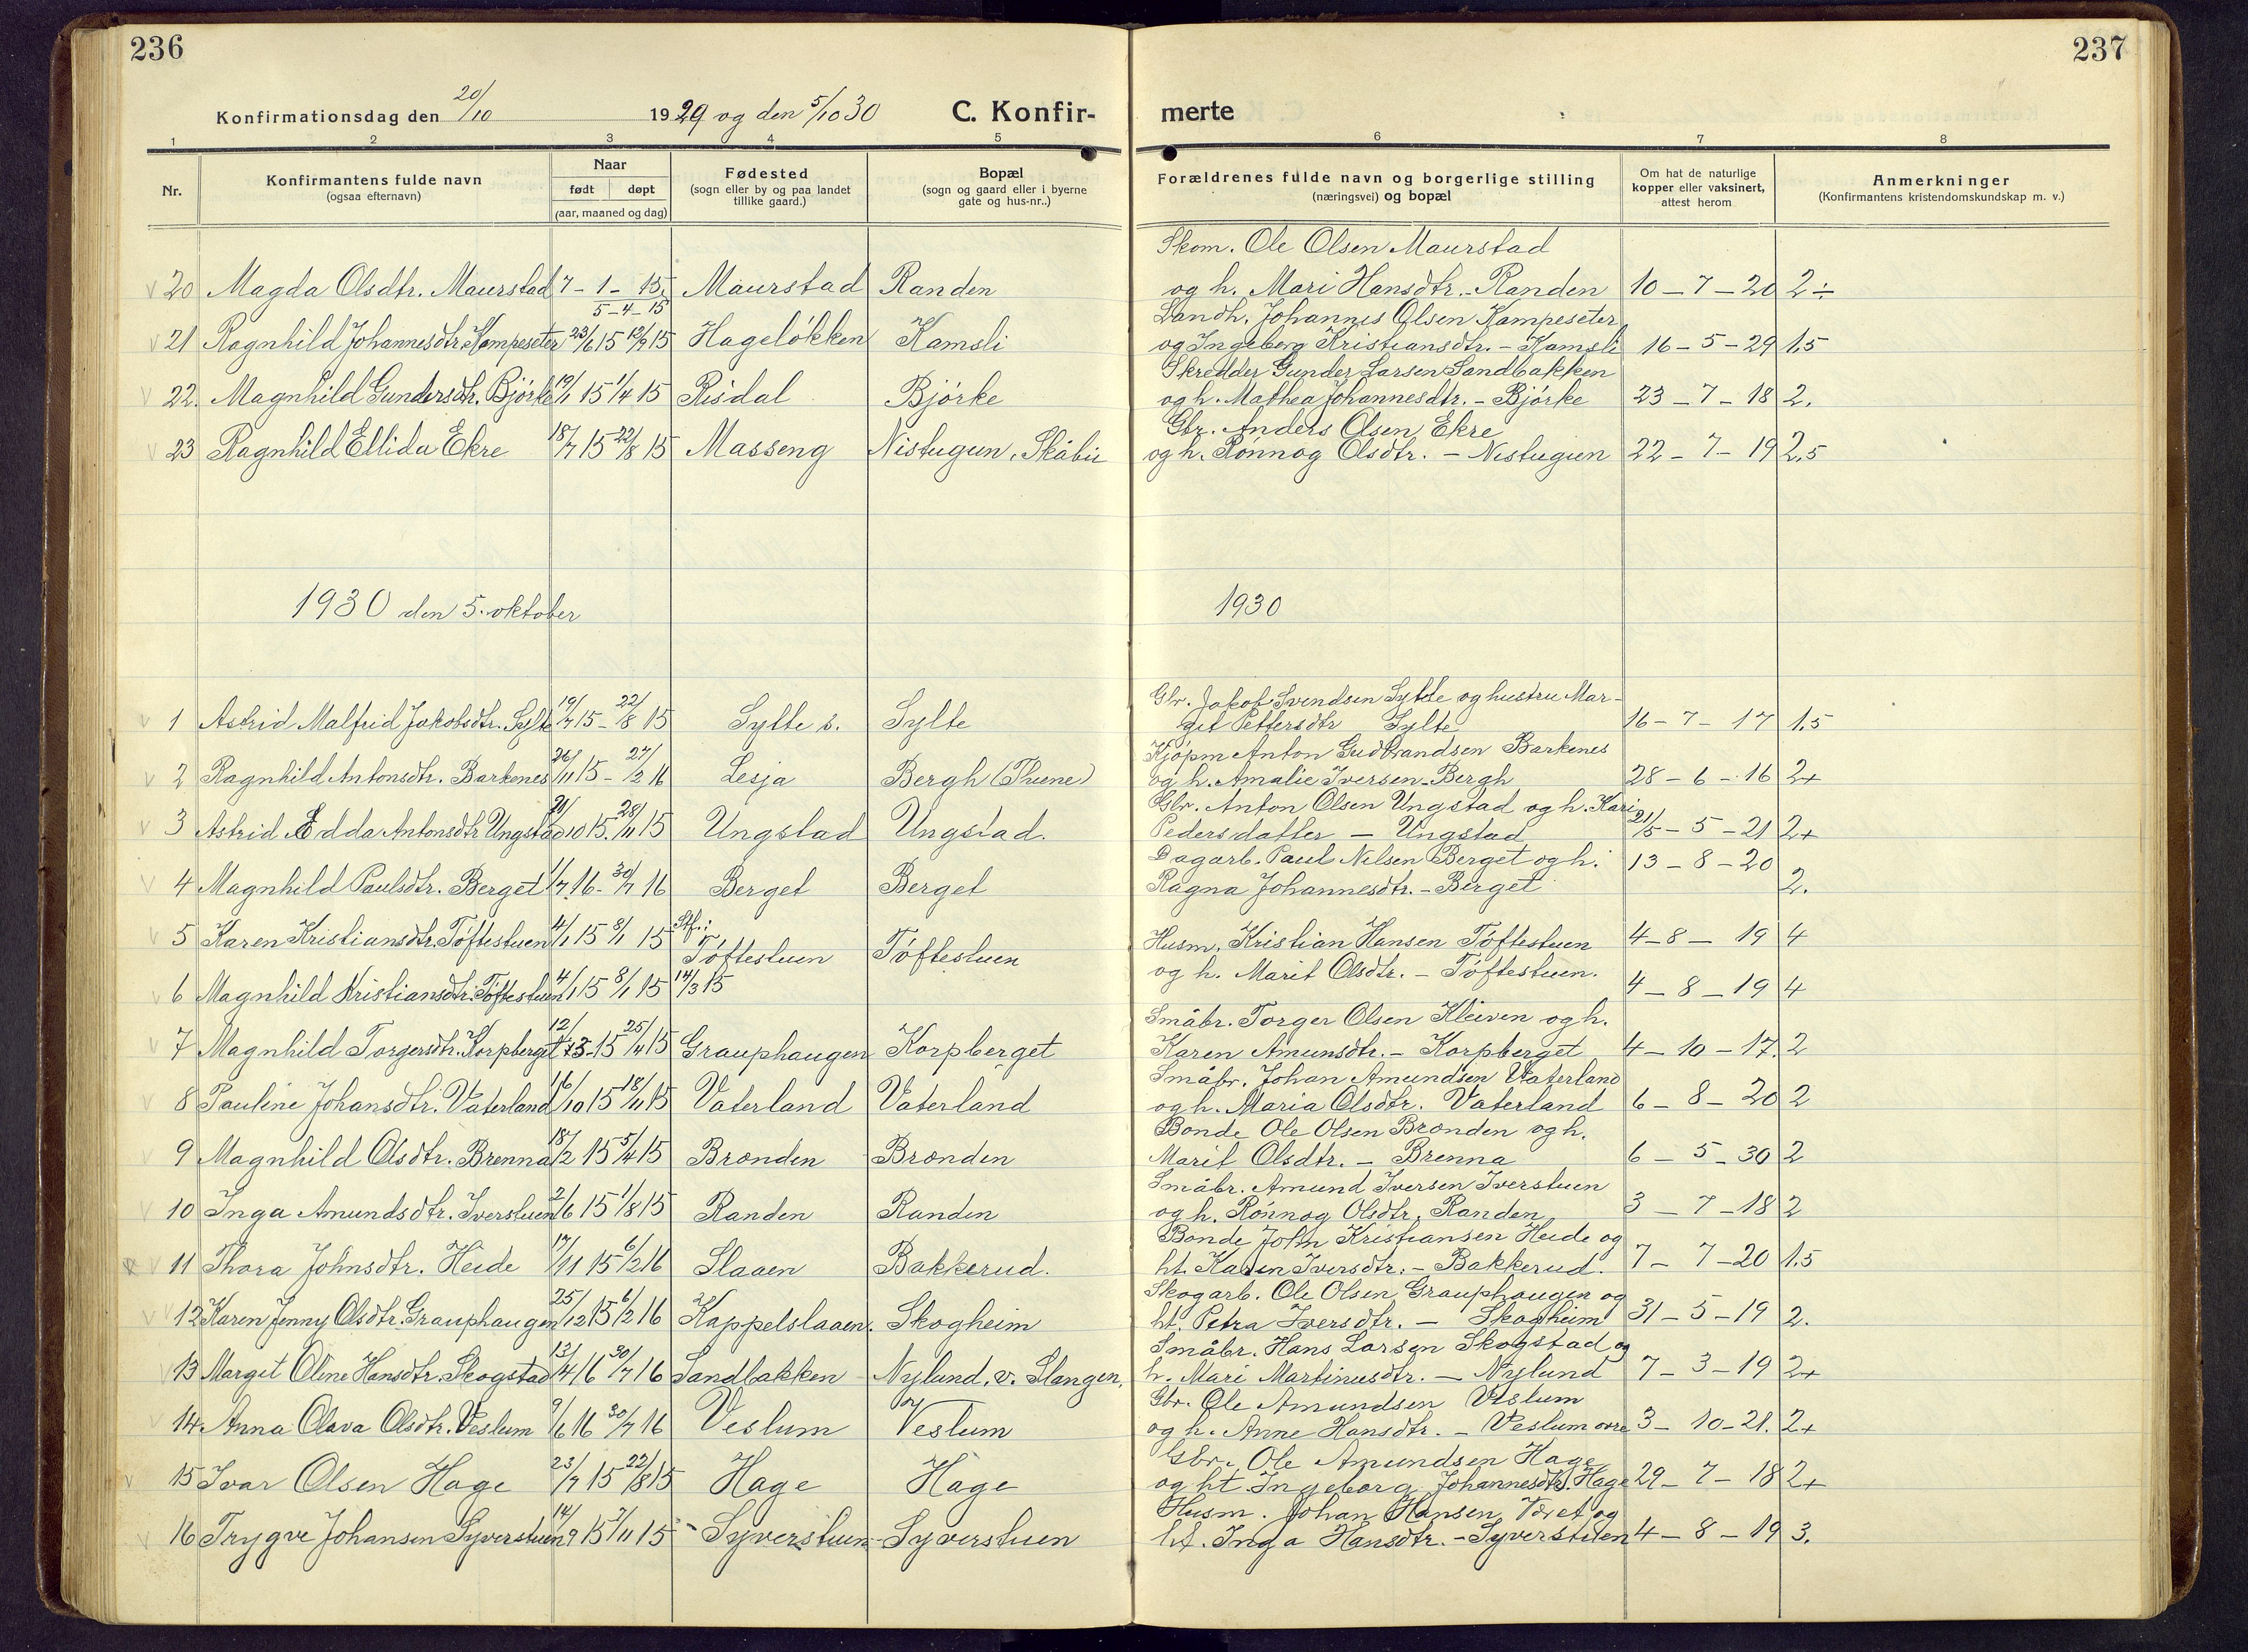 236
237
Konfirmationsdag den 20/10 1929 og den 5/10 30 C. Konfir- merte
1 2 3 4 5 6 7 8
Nr.
Konfirmantens fulde navn
(ogsaa efternavn)
Naar
født døpt
(aar, maaned og dag)
Fødested
(sogn eller by og paa landet
tillike gaard.)
Bopæl
(sogn og gaard eller i byerne
gate og hus-nr..)
Forældrenes fulde navn og borgerlige stilling
(næringsvei) og bopæl
Om hat de naturlige
kopper eller vaksinert,
attest herom
Anmerkninger
(Konfirmantens kristendomskundskap m. v.)
Skom. Ole Olsen Maurstad
20 Magda Olsdtr. Maurstad 7-1-15. 5-4-15 Maurstad Randen og h. Mari Hansdtr. - Randen 10-7-20 2÷
Landh. Johannes Olsen Kampeseter
21 Ragnhild Johannesdtr. Kampeseter 23/6 15 12/9 15 Hageløkken Kamsli og Ingeborg Kristiansdtr. - Kamsli 16-5-29 1.5
Skredder Gunder Larsen Sandbakken
22. Magnhild Gundersdtr. Bjørke 19/1 15 1/4 15 Risdal Bjørke og h. Mathea Johannesdtr. - Bjørke 23-7-18 2.
Gbr. Anders Olsen Ekre
23 Ragnhild Ellida Ekre 18/7 15 22/8 15 Masseng Nistugun, Skåbu og h. Rønnog Olsdtr. - Nistugun 22-7-19 2.5
1930 den 5. oktober 1930
Gbr. Jakob Svendsen Sylte og hustru Mar-
1 Astrid Malfrid Jakobsdtr. Sylte 19/7 15 - 22/8 15 Sylte s. Sylte git Pettersdtr Sylte 16-7-17 1.5
Kjøpm Anton Gudbrandsen Barkenes
2 Ragnhild Antonsdtr. Barkenes 26/11 15 - 27/2 16 Lesja Bergh (Thune) og h. Amalie Iversen - Bergh 28-6-16 2+
Gbr. Anton Olsen Ungstad og h. Kari
3 Astrid Edda Antonsdtr Ungstad 21/10 15. 28/11 15 Ungstad Ungstad. Pedersdatter - Ungstad 21/5-5-21 2+
Dagarb. Paul Nilsen Berget og h.
4 Magnhild Paulsdtr. Berget 1/7.16 - 30/7 16 Berget Berget Ragna Johannesdtr. - Berget 13-8-20 2.
5 Karen Kristiansdtr. Tøftestuen 4/1 15 8/1 15 Stf.: Tøftestuen Tøftestuen Husm. Kristian Hansen Tøftestuen 4-8-19 4
og h. Marit Olsdtr. - Tøftestuen.
6 Magnhild Kristiansdtr. Tøftestuen 4/1 15 8/1 15 14/3 15 4-8-19 4
Småbr. Torger Olsen Kleiven og h.
7 Magnhild Torgersdtr. Korpberget 12/3-15 25/4 15 Grauphaugen Korpberget Karen Amunsdtr. - Korpberget 4-10-17. 2
Småbr. Johan Amundsen Vaterland
8 Pauline Johansdtr. Vaterland 16/10 15 18/11 15 Vaterland Vaterland og h. Maria Olsdtr. Vaterland 6-8-20 2
Bonde Ole Olsen Brønden og h.
9 Magnhild Olsdtr. Brenna 18/2 15 5/4 15 Brønden Brønden Marit Olsdtr. - Brenna 6-5-30 2
Småbr. Amund Iversen Iverstuen
10 Inga Amundsdtr. Iverstuen 2/6 15 1/8 15 Randen Randen og h. Rønnog Olsdtr. Randen 3-7-18 2
Bonde John Kristiansen Heide og
11 Thora Johnsdtr. Heide 17/11 15 6/2 16 Slaaen Bakkerud. ht. Karen Iversdtr. - Bakkerud. 7-7-20 1.5
Skogarb. Ole Olsen Grauphaugen og
12 Karen Jenny Olsdtr. Grauphaugen 25/12 15 6/2 16 Kappelslaaen. Skogheim ht. Petra Iversdtr. - Skogheim 31-5-19 2.
Småbr. Hans Larsen Skogstad og
13 Margit Oline Hansdtr. Skogstad 13/4 16 30/7 16 Sandbakken Nylund, v. Slangen, h. Mari Martinusdtr. - Nylund 7-3-19 2+
Gbr. Ole Amundsen Veslum
14. Anna Olava Olsdtr. Veslum 9/6 16 30/7 16 Veslum Veslum og h. Anne Hansdtr. - Veslum øvre 3-10-21. 2+
Gbr. Ole Amundsen Hage
15 Ivar Olsen Hage 23/7 15 22/8 15 Hage Hage og ht. Ingeborg Johannesdtr. Hage 29-7-18 2+
Husm. Johan Hansen Tøvet og
16 Trygve Johansen Syverstuen 14/9 15 7/11 15 - Syverstuen - Syverstuen ht. Inga Hansdtr. - Syverstuen 4-8-19 3.